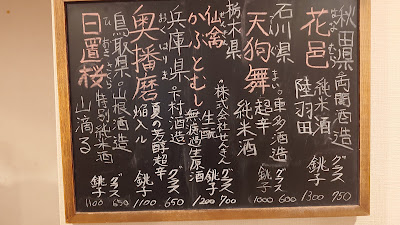 秋田県 両関酒造
花邑 純米酒 陸羽田
グラス 750
銚子 1300
石川県 車多酒造
天狗舞 超辛 純米酒
グラス 600
銚子 1000
栃木県 “株式会社せんきん
仙禽 かぶとむし 生酛 無濾過生原酒
グラス 700
銚子 1200
兵庫県 下村酒造
奥播磨 おくはりま 夏の芳醇超辛
グラス 650
銚子 1100
鳥取県 山根酒造
日置桜 ひおきざくら 特別純米酒 山滴る
グラス 650
銚子 1100